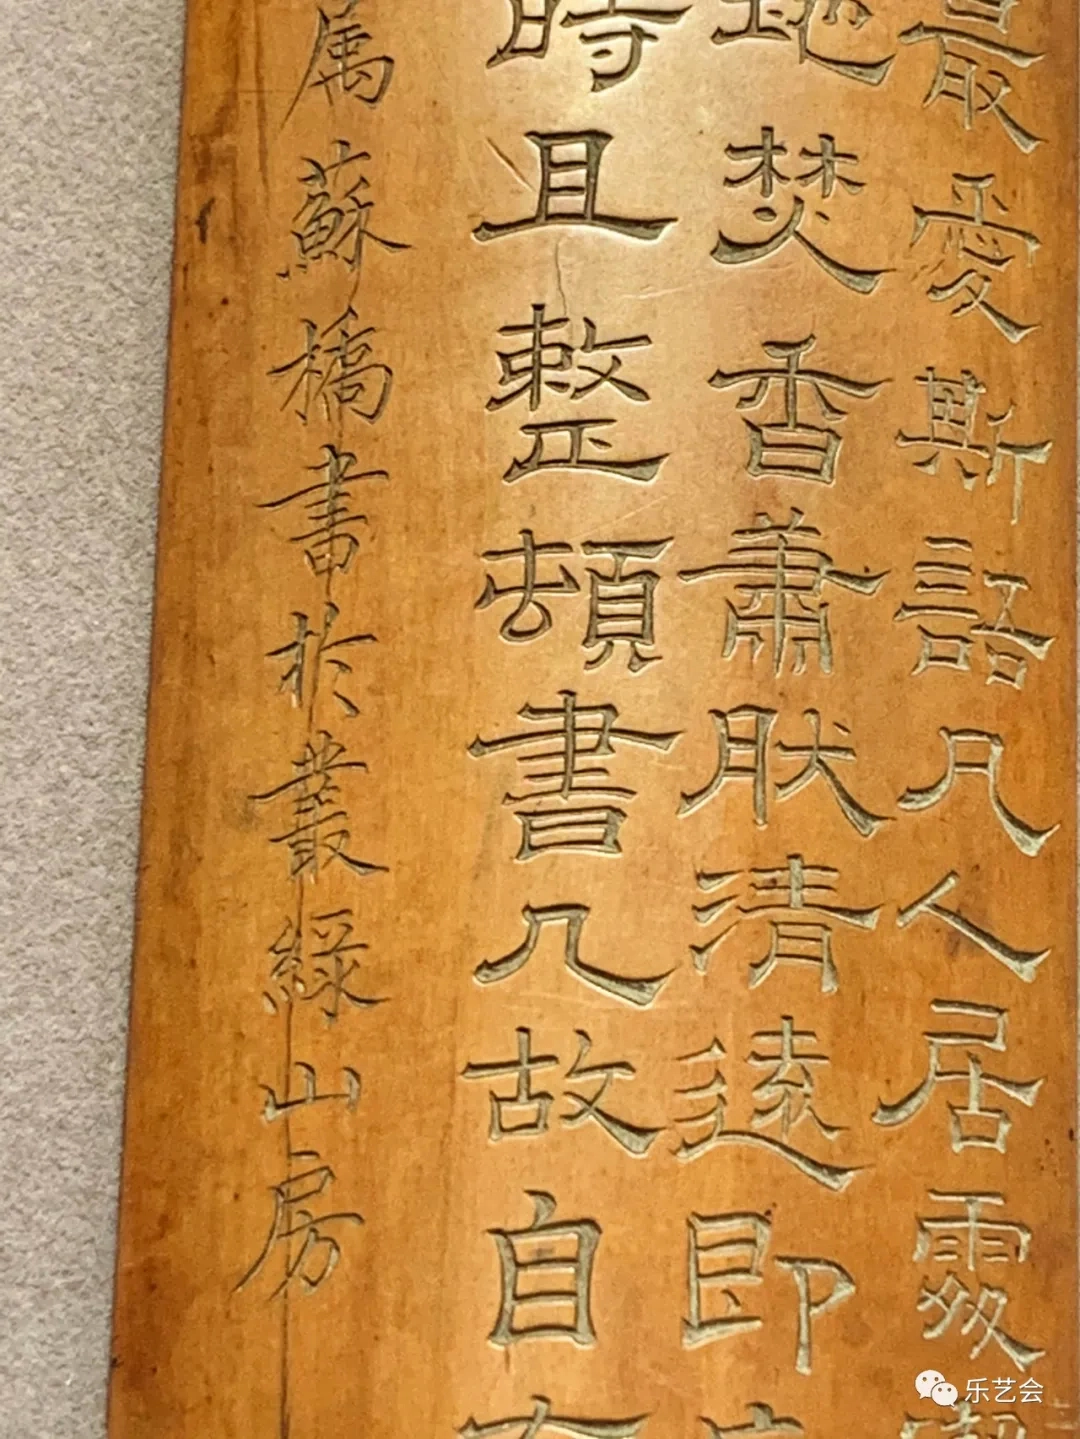 最愛斯語凡人居處
地焚香蕭肰清遠即
時且整頓書几故自
属蘇橋書於叢綠山房
乐艺会